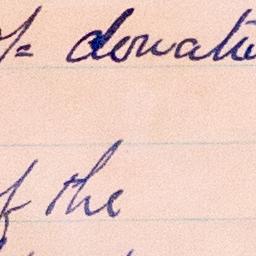 /= donatio
of the